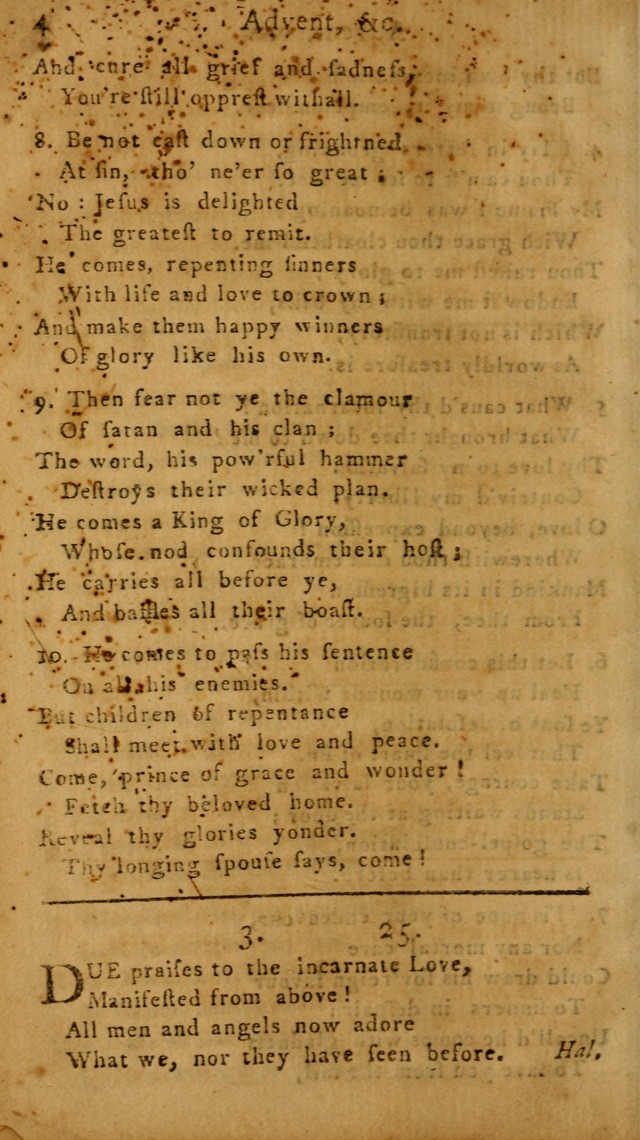 4 Advent, &c.
And cure all grief and ſadneſs,
You're ſtill oppreſt withall.
8. Be not caſt down or frightned
At ſin, tho' ne'er ſo great ;
No : Jeſus is delighted
The greateſt to remit.
He comes, repenting ſinners
With life and love to crown ;
And make them happy winners
Of glory like his own.
9. Then fear not ye the clamour
Of ſatan and his clan ;
The word, his pow'rful hammer
Deſtroys their wicked plan.
He comes a King of Glory,
Whoſe nod confounds their hoſt ;
He carries all before ye,
And baffles all their boaſt.
10. He comes to paſs his ſentence
On all his enemies.
But children of repentance
Shall meet with love and peace.
Come, prince of grace and wonder !
Fetch thy beloved home.
Reveal thy glories yonder.
Thy longing ſpouſe ſays, come !
3. 25.
DUE praiſes to the incarnate Love,
Manifeſted from above !
All men and angels now adore
What we, nor they have ſeen before.
Hal.